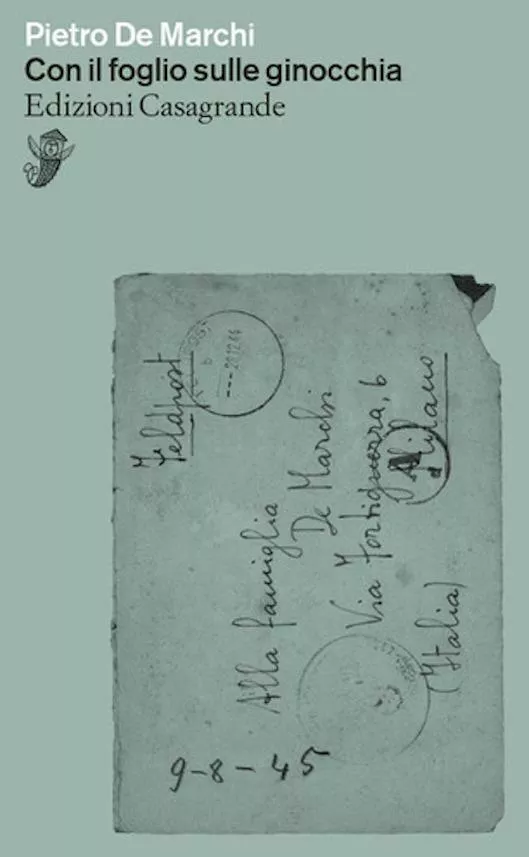 Pietro De Marchi
Con il foglio sulle ginocchia
Edizioni Casagrande
Feldpost
20.12.44
Alla famiglia
De Marchi
Via Fortiguerra, 6
Milano
(Italia)
9-8-45